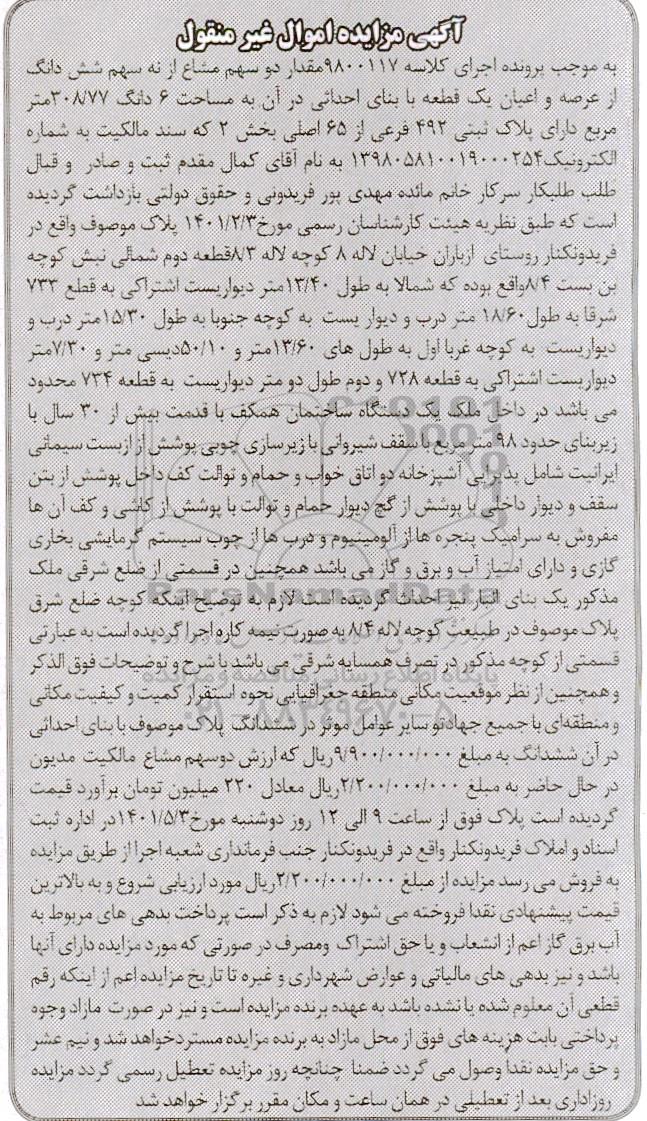 آگهی مزایده اموال غیر منقول
به موجب پرونده اجرای کلاسه ۹۸۰۰۱۱۷مقدار دو سهم مشاع از نه سهم شش دانگ
از عرصه و اعیان یک قطعه با بنای احداثی در آن به مساحت ۶ دانگ ۳۰۸/۷۷متر
مربع دارای پلاک ثبتی ۴۹۲ فرعی از ۶۵ اصلی بخش ۲ که سند مالکیت به شماره
الکترونیک۱۳۹۸۰۵۸۱۰۰۱۹۰۰۰۲۵۴ به نام آقای کمال مقدم ثبت و صادر و قبال
طلب طلبکار سرکار خانم مائده مهدی پور فریدونی و حقوق دولتی بازداشت گردیده
است که طبق نظریه هیئت کارشناسان رسمی مورخ۱۴۰۱/۲/۳ پلاک موصوف واقع در
فریدونکنار روستای ازباران خیابان لاله ۸ کوچه لاله ۸/۳قطعه دوم شمالی نبش کوچه
بن بست ۸/۴واقع بوده که شمالا به طول ۱۳/۴۰متر دیواریست اشتراکی به قطع ۷۳۳
شرقا به طول۱۸/۶۰ متر درب و دیوار یست به کوچه جنوبا به طول ۱۵/۳۰متر درب و
دیواریست به کوچه غربا اول به طول های ۱۳/۶۰متر و ۵۰/۱۰دیسی متر و ۷/۳۰متر
دیواریست اشتراکی به قطعه ۷۲۸ و دوم طول دو متر دیواریست به قطعه ۷۳۴ محدود
می باشد در داخل ملک یک دستگاه ساختمان همکف با قدمت بیش از ۳۰ سال با
زیربنای حدود ۹۸ متر مربع با سقف شیروانی با زیرسازی چوبی پوشش از ازبست سیمانی
ایرانیت شامل پذیرایی آشپزخانه دو اتاق خواب و حمام و توالت کف داخل پوشش از بتن
سقف و دیوار داخلی با پوشش از گچ دیوار حمام و توالت با پوشش از کاشی و کف آن ها
مفروش به سرامیک پنجره ها از آلومینیوم و درب ها از چوب سیستم گرمایشی بخاری
گازی و دارای امتیاز آب و برق و گاز می باشد همچنین در قسمتی از ضلع شرقی ملک
مذکور یک بنای انبار نیز احداث گردیده است لازم به توضیح اینکه کوچه ضلع شرق
پلاک موصوف در طبیعت کوچه لاله ۸/۴ به صورت نیمه کاره اجرا گردیده است به عبارتی
قسمتی از کوچه مذکور در تصرف همسایه شرقی می باشد با شرح و توضیحات فوق الذکر
و همچنین از نظر موقعیت مکانی منطقه جغرافیایی نحوه استقرار کمیت و کیفیت مکانی
و منطقه‌ای با جمیع جهادتو سایر عوامل موثر در ششدانگ پلاک موصوف با بنای احداثی
در آن ششدانگ به مبلغ ۹/۹۰۰/۰۰۰/۰۰۰ریال که ارزش دوسهم مشاع مالکیت مدیون
در حال حاضر به مبلغ ۲/۲۰۰/۰۰۰/۰۰۰ریال معادل ۲۲۰ میلیون تومان برآورد قیمت
گردیده است پلاک فوق از ساعت ۹ الی ۱۲ روز دوشنبه مورخ۱۴۰۱/۵/۳در اداره ثبت
اسناد و املاک فریدونکنار واقع در فریدونکنار جنب فرمانداری شعبه اجرا از طریق مزایده
به فروش می رسد مزایده از مبلغ ۲/۲۰۰/۰۰۰/۰۰۰ریال مورد ارزیابی شروع و به بالاترین
قیمت پیشنهادی نقدا فروخته می شود لازم به ذکر است پرداخت بدهی های مربوط به
آب برق گاز اعم از انشعاب و یا حق اشتراک ومصرف در صورتی که مورد مزایده دارای آنها
باشد و نیز بدهی های مالیاتی و عوارض شهرداری و غیره تا تاریخ مزایده اعم از اینکه رقم
قطعی آن معلوم شده یا نشده باشد به عهده برنده مزایده است و نیز در صورت مازاد وجوه
پرداختی بابت هزینه های فوق از محل مازاد به برنده مزایده مسترد خواهد شد و نیم عشر
و حق مزایده نقداً وصول می گردد ضمنا چنانچه روز مزایده تعطیل رسمی گردد مزایده
روزاداری بعد از تعطیلی در همان ساعت و مکان مقرر برگزار خواهد شد
ParsNamadData
پایگاه اطلاع رسانی مناقصه و مزایده
۰۲۱-۸۸۳۴۹۶۷۰-۵